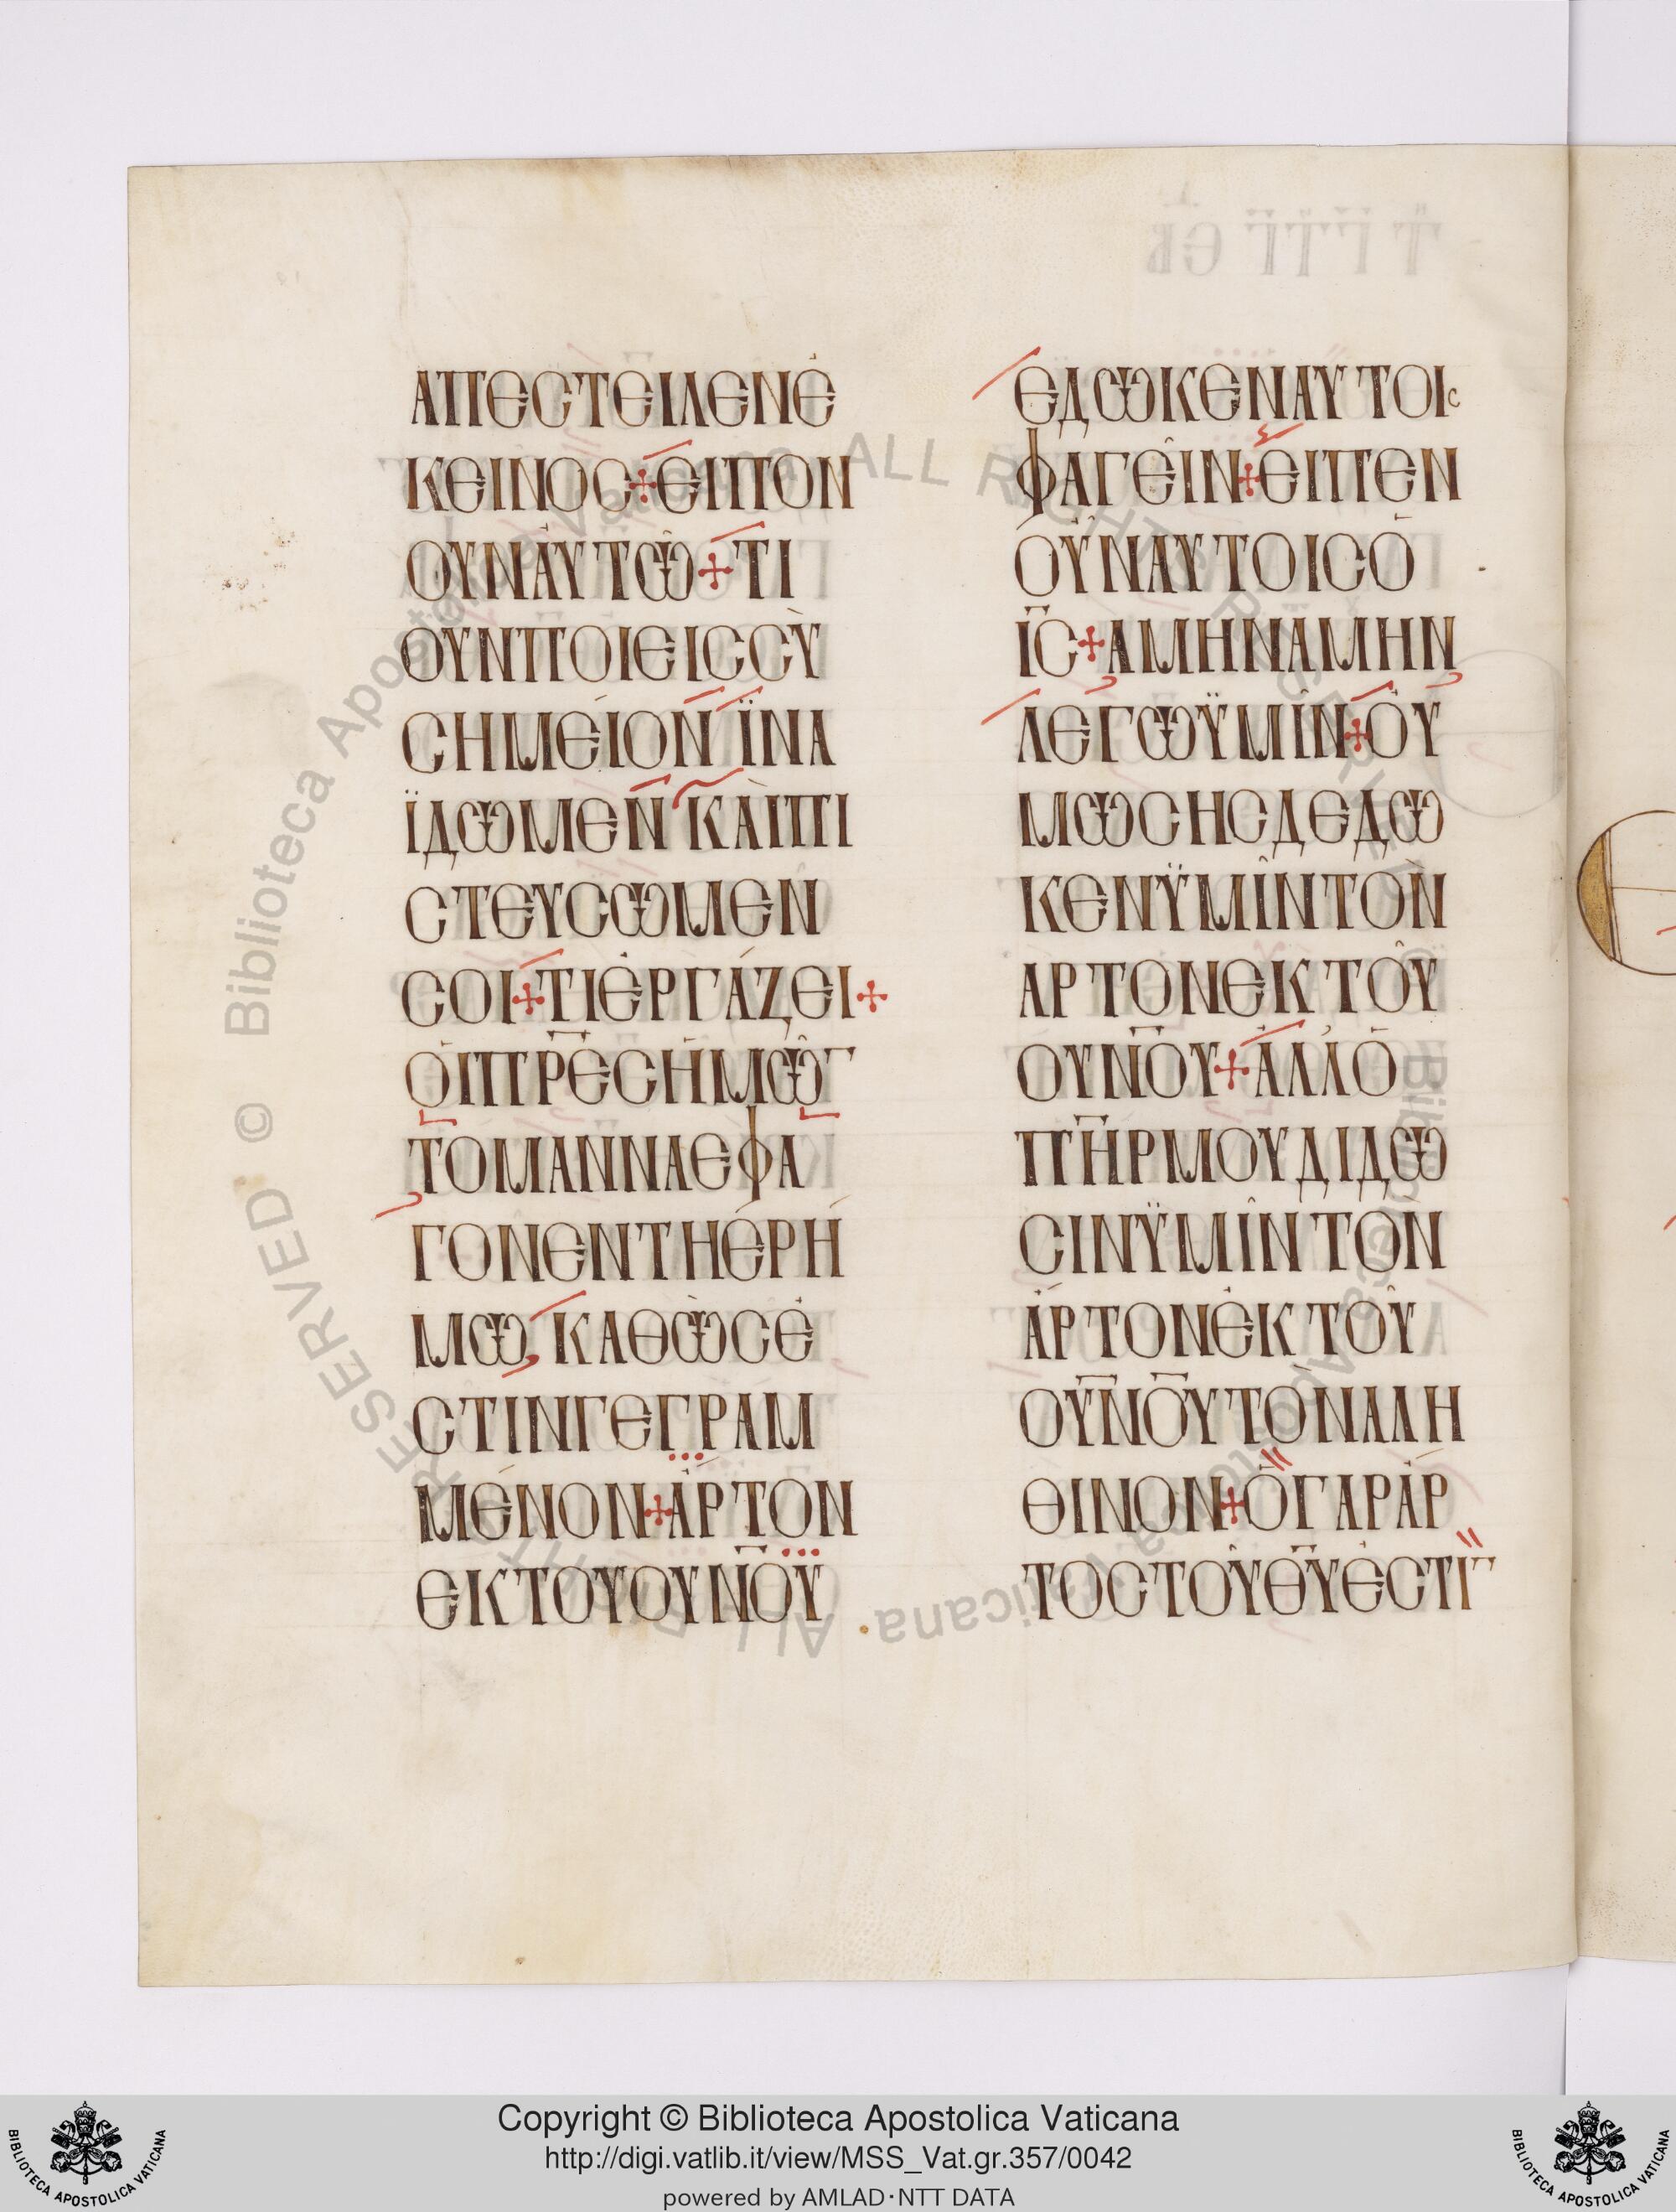 ΑΠΕСΤΕΙΛΕΝΕ
ΚΕΙΝΟС+ΕΙΠΟΝ
ΟΥΝΑΥΤѠ+ΤΙ
ΟΥΝΠΟΙΕΙССΥ
СΗΜΕΙΟΝΪΝΑ
ΪΔѠΜΕΝΚΑΙΠΙ
СΤΕΥСѠΜΕΝ
СΟΙ+ΤΙΕΡΓΑΖΕΙ+
ΟΙΠΡΕСΗΜѠ̅
ΤΟΜΑΝΝΑΕΦΑ
ΓΟΝΕΝΤΗΕΡΗ
ΜѠ,ΚΑΘѠСΕ
СΤΙΝΓΕΓΡΑΜ
ΜΕΝΟΝ+ΑΡΤΟΝ
ΕΚΤΟΥΟΥΝΟΥ
ΕΔѠΚΕΝΑΥΤΟΙС
ΦΑΓΕΙΝ+ΕΙΠΕΝ
ΟΥΝΑΥΤΟΙСΟ
ΙС+ΑΜΗΝΑΜΗΝ
ΛΕΓѠΫΜΙΝ+ΟΥ
ΜѠСΗСΔΕΔѠ
ΚΕΝΫΜΙΝΤΟΝ
ΑΡΤΟΝΕΚΤΟΥ
ΟΥΝΟΥ+ΑΛΛΟ
ΠΗΡΜΟΥΔΙΔѠ
СΙΝΫΜΙΝΤΟΝ
ΑΡΤΟΝΕΚΤΟΥ
ΟΥΝΟΥΤΟΝΑΛΗ
ΘΙΝΟΝ+ΟΓΑΡΑΡ
ΤΟСΤΟΥΘΥΕСΤΙ̅
© Biblioteca Apostolica Vaticana. ALL RIGHTS RESERVED
Copyright © Biblioteca Apostolica Vaticana
http://digi.vatlib.it/view/MSS_Vat.gr.357/0042
powered by AMLAD·NTT DATA
BIBLIOTECA APOSTOLICA VATICANA
BIBLIOTECA APOSTOLICA VATICANA